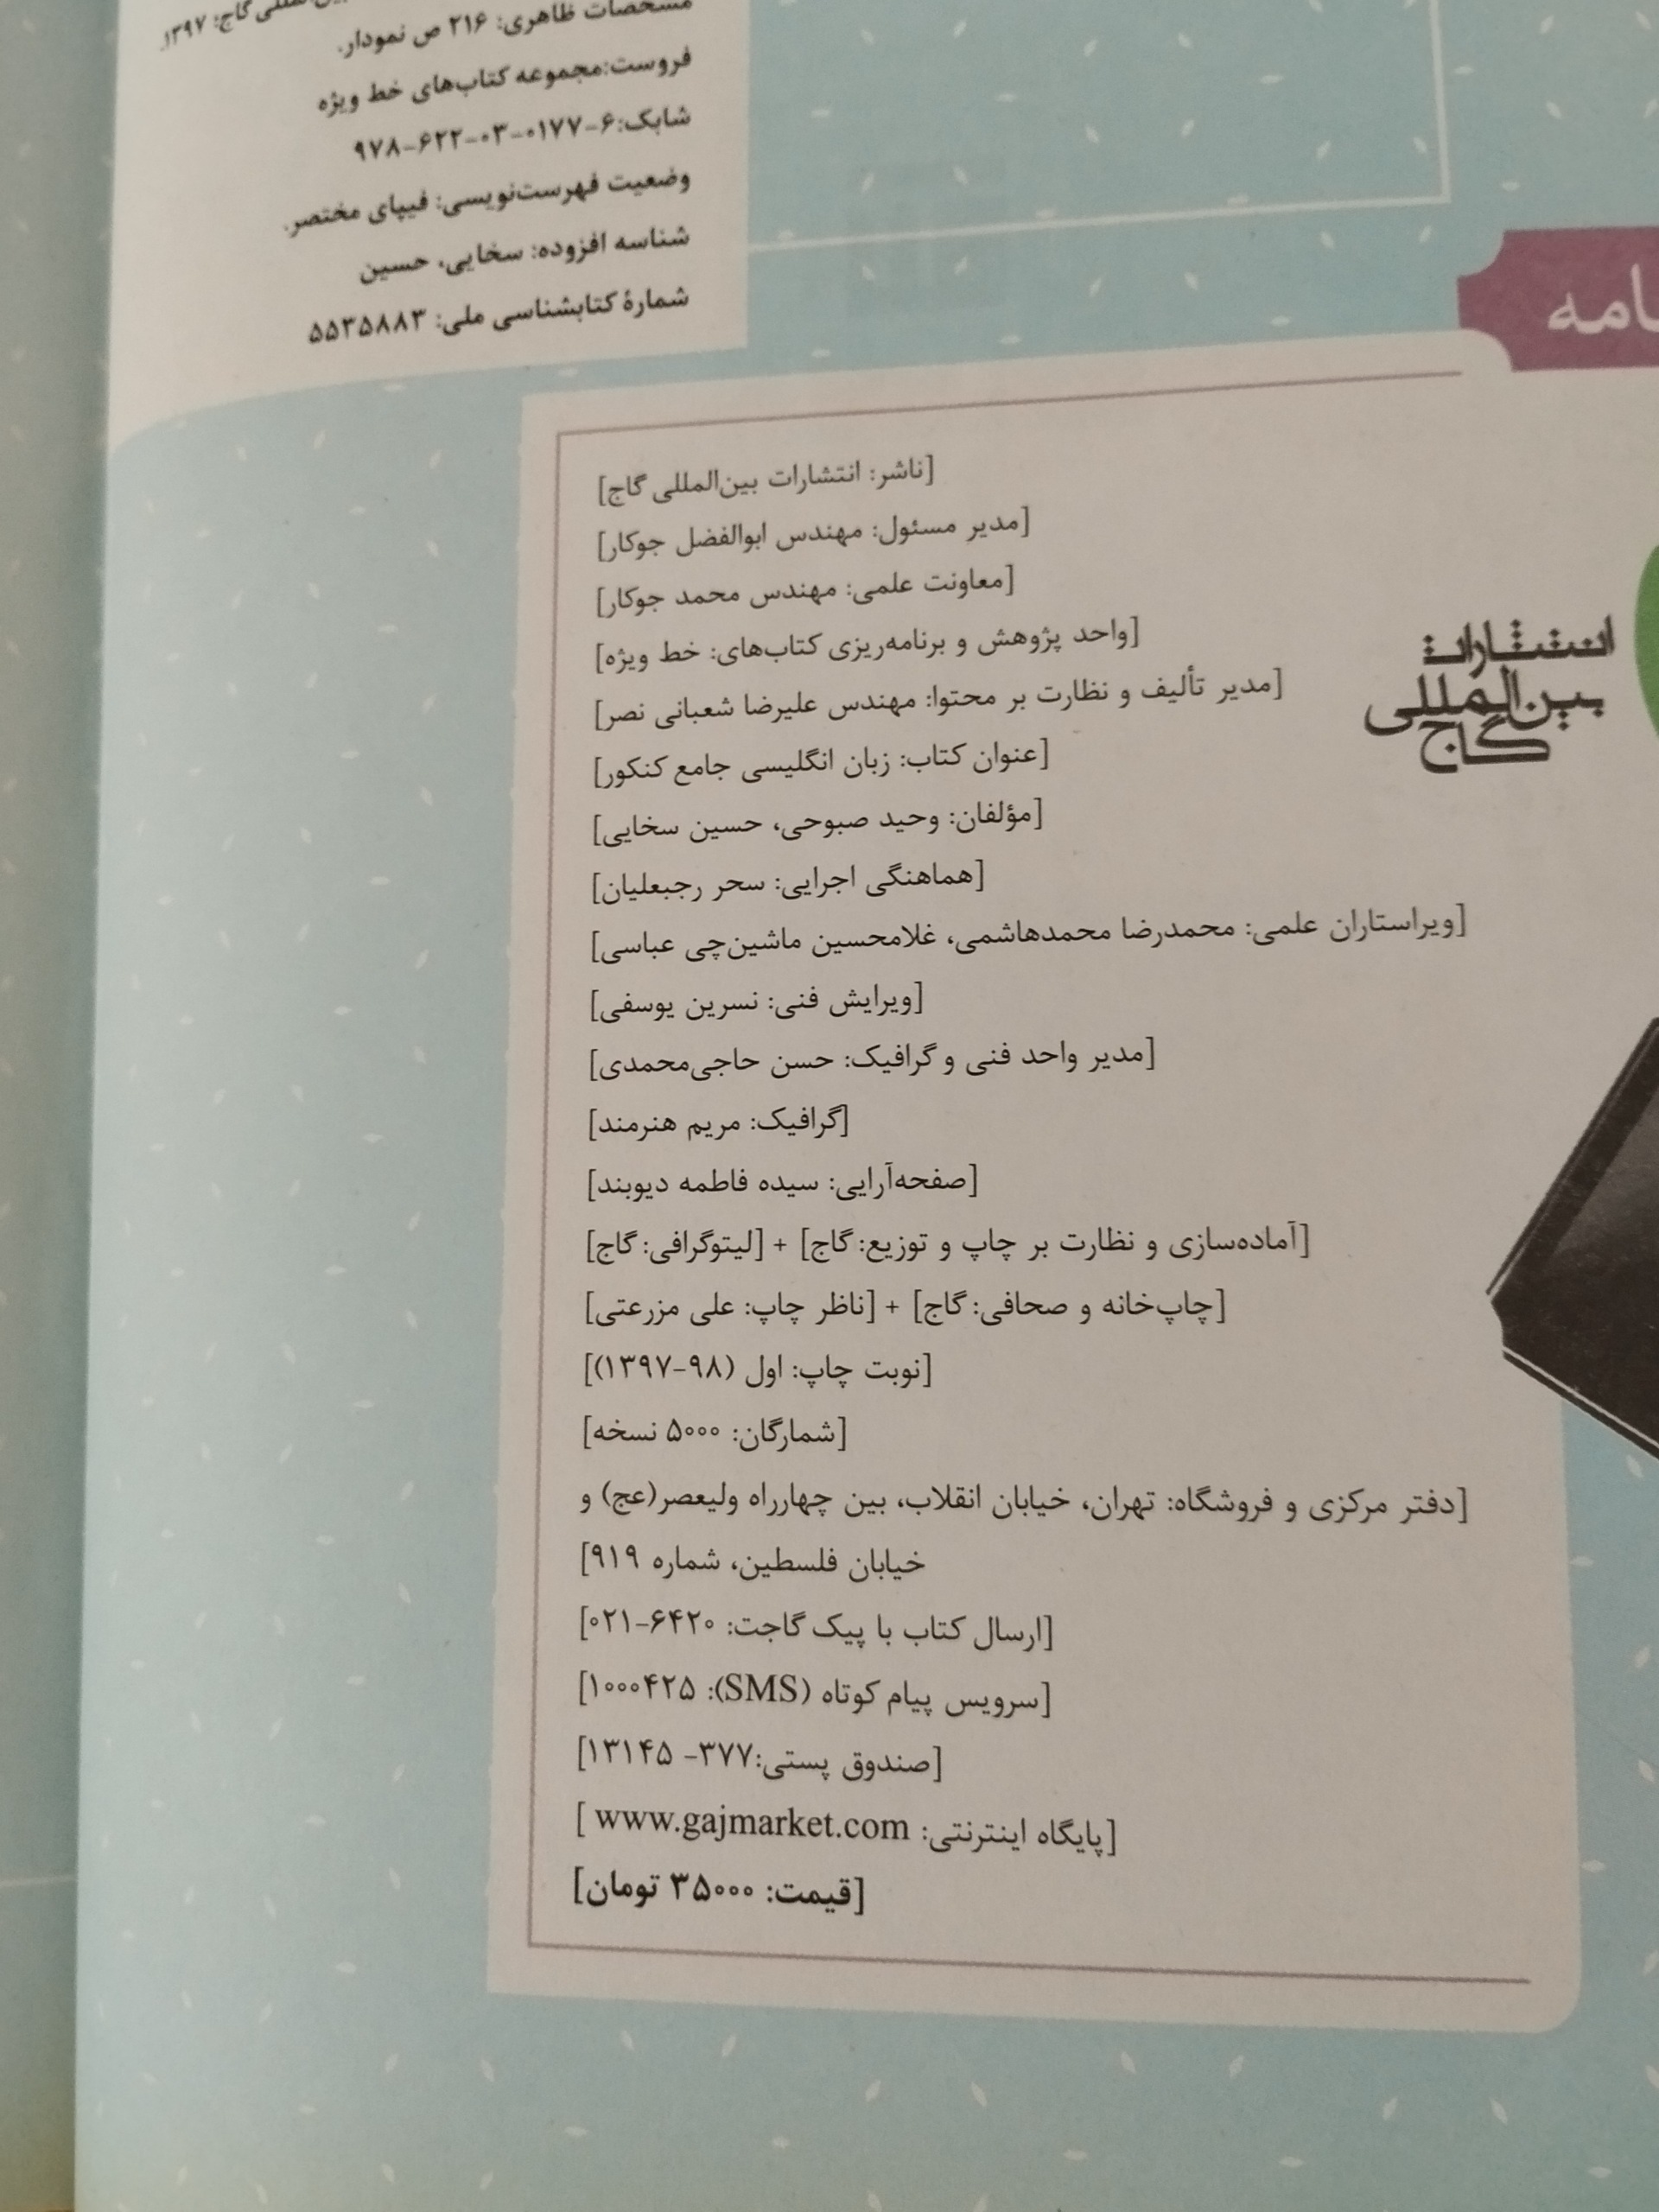 گاج: ۱۳۹۷.
مشخصات ظاهری: ۲۱۶ ص نمودار.
فروست:مجموعه کتاب‌های خط ویژه
شابک:۶-۰۱۷۷-۰۳-۶۲۲-۹۷۸
وضعیت فهرست‌نویسی: فیپای مختصر.
شناسه افزوده: سخایی، حسین
شمارهٔ کتابشناسی ملی: ۵۵۳۵۸۸۳
[ناشر: انتشارات بین‌المللی گاج]
[مدیر مسئول: مهندس ابوالفضل جوکار]
[معاونت علمی: مهندس محمد جوکار]
[واحد پژوهش و برنامه‌ریزی کتاب‌های: خط ویژه]
[مدیر تألیف و نظارت بر محتوا: مهندس علیرضا شعبانی نصر]
[عنوان کتاب: زبان انگلیسی جامع کنکور]
[مؤلفان: وحید صبوحی، حسین سخایی]
[هماهنگی اجرایی: سحر رجبعلیان]
[ویراستاران علمی: محمدرضا محمدهاشمی، غلامحسین ماشین‌چی عباسی]
[ویرایش فنی: نسرین یوسفی]
[مدیر واحد فنی و گرافیک: حسن حاجی‌محمدی]
[گرافیک: مریم هنرمند]
[صفحه‌آرایی: سیده فاطمه دیوبند]
[آماده‌سازی و نظارت بر چاپ و توزیع: گاج] + [لیتوگرافی: گاج]
[چاپ‌خانه و صحافی: گاج] + [ناظر چاپ: علی مزرعتی]
[نوبت چاپ: اول (۹۸-۱۳۹۷)]
[شمارگان: ۵۰۰۰ نسخه]
[دفتر مرکزی و فروشگاه: تهران، خیابان انقلاب، بین چهارراه ولیعصر(عج) و
خیابان فلسطین، شماره ۹۱۹]
[ارسال کتاب با پیک گاجت: ۶۴۲۰-۰۲۱]
[سرویس پیام کوتاه (SMS): ۱۰۰۰۴۲۵]
[صندوق پستی:۳۷۷- ۱۳۱۴۵]
[پایگاه اینترنتی: www.gajmarket.com ]
[قیمت: ۳۵۰۰۰ تومان]
انتشارات
بین‌المللی
گاج